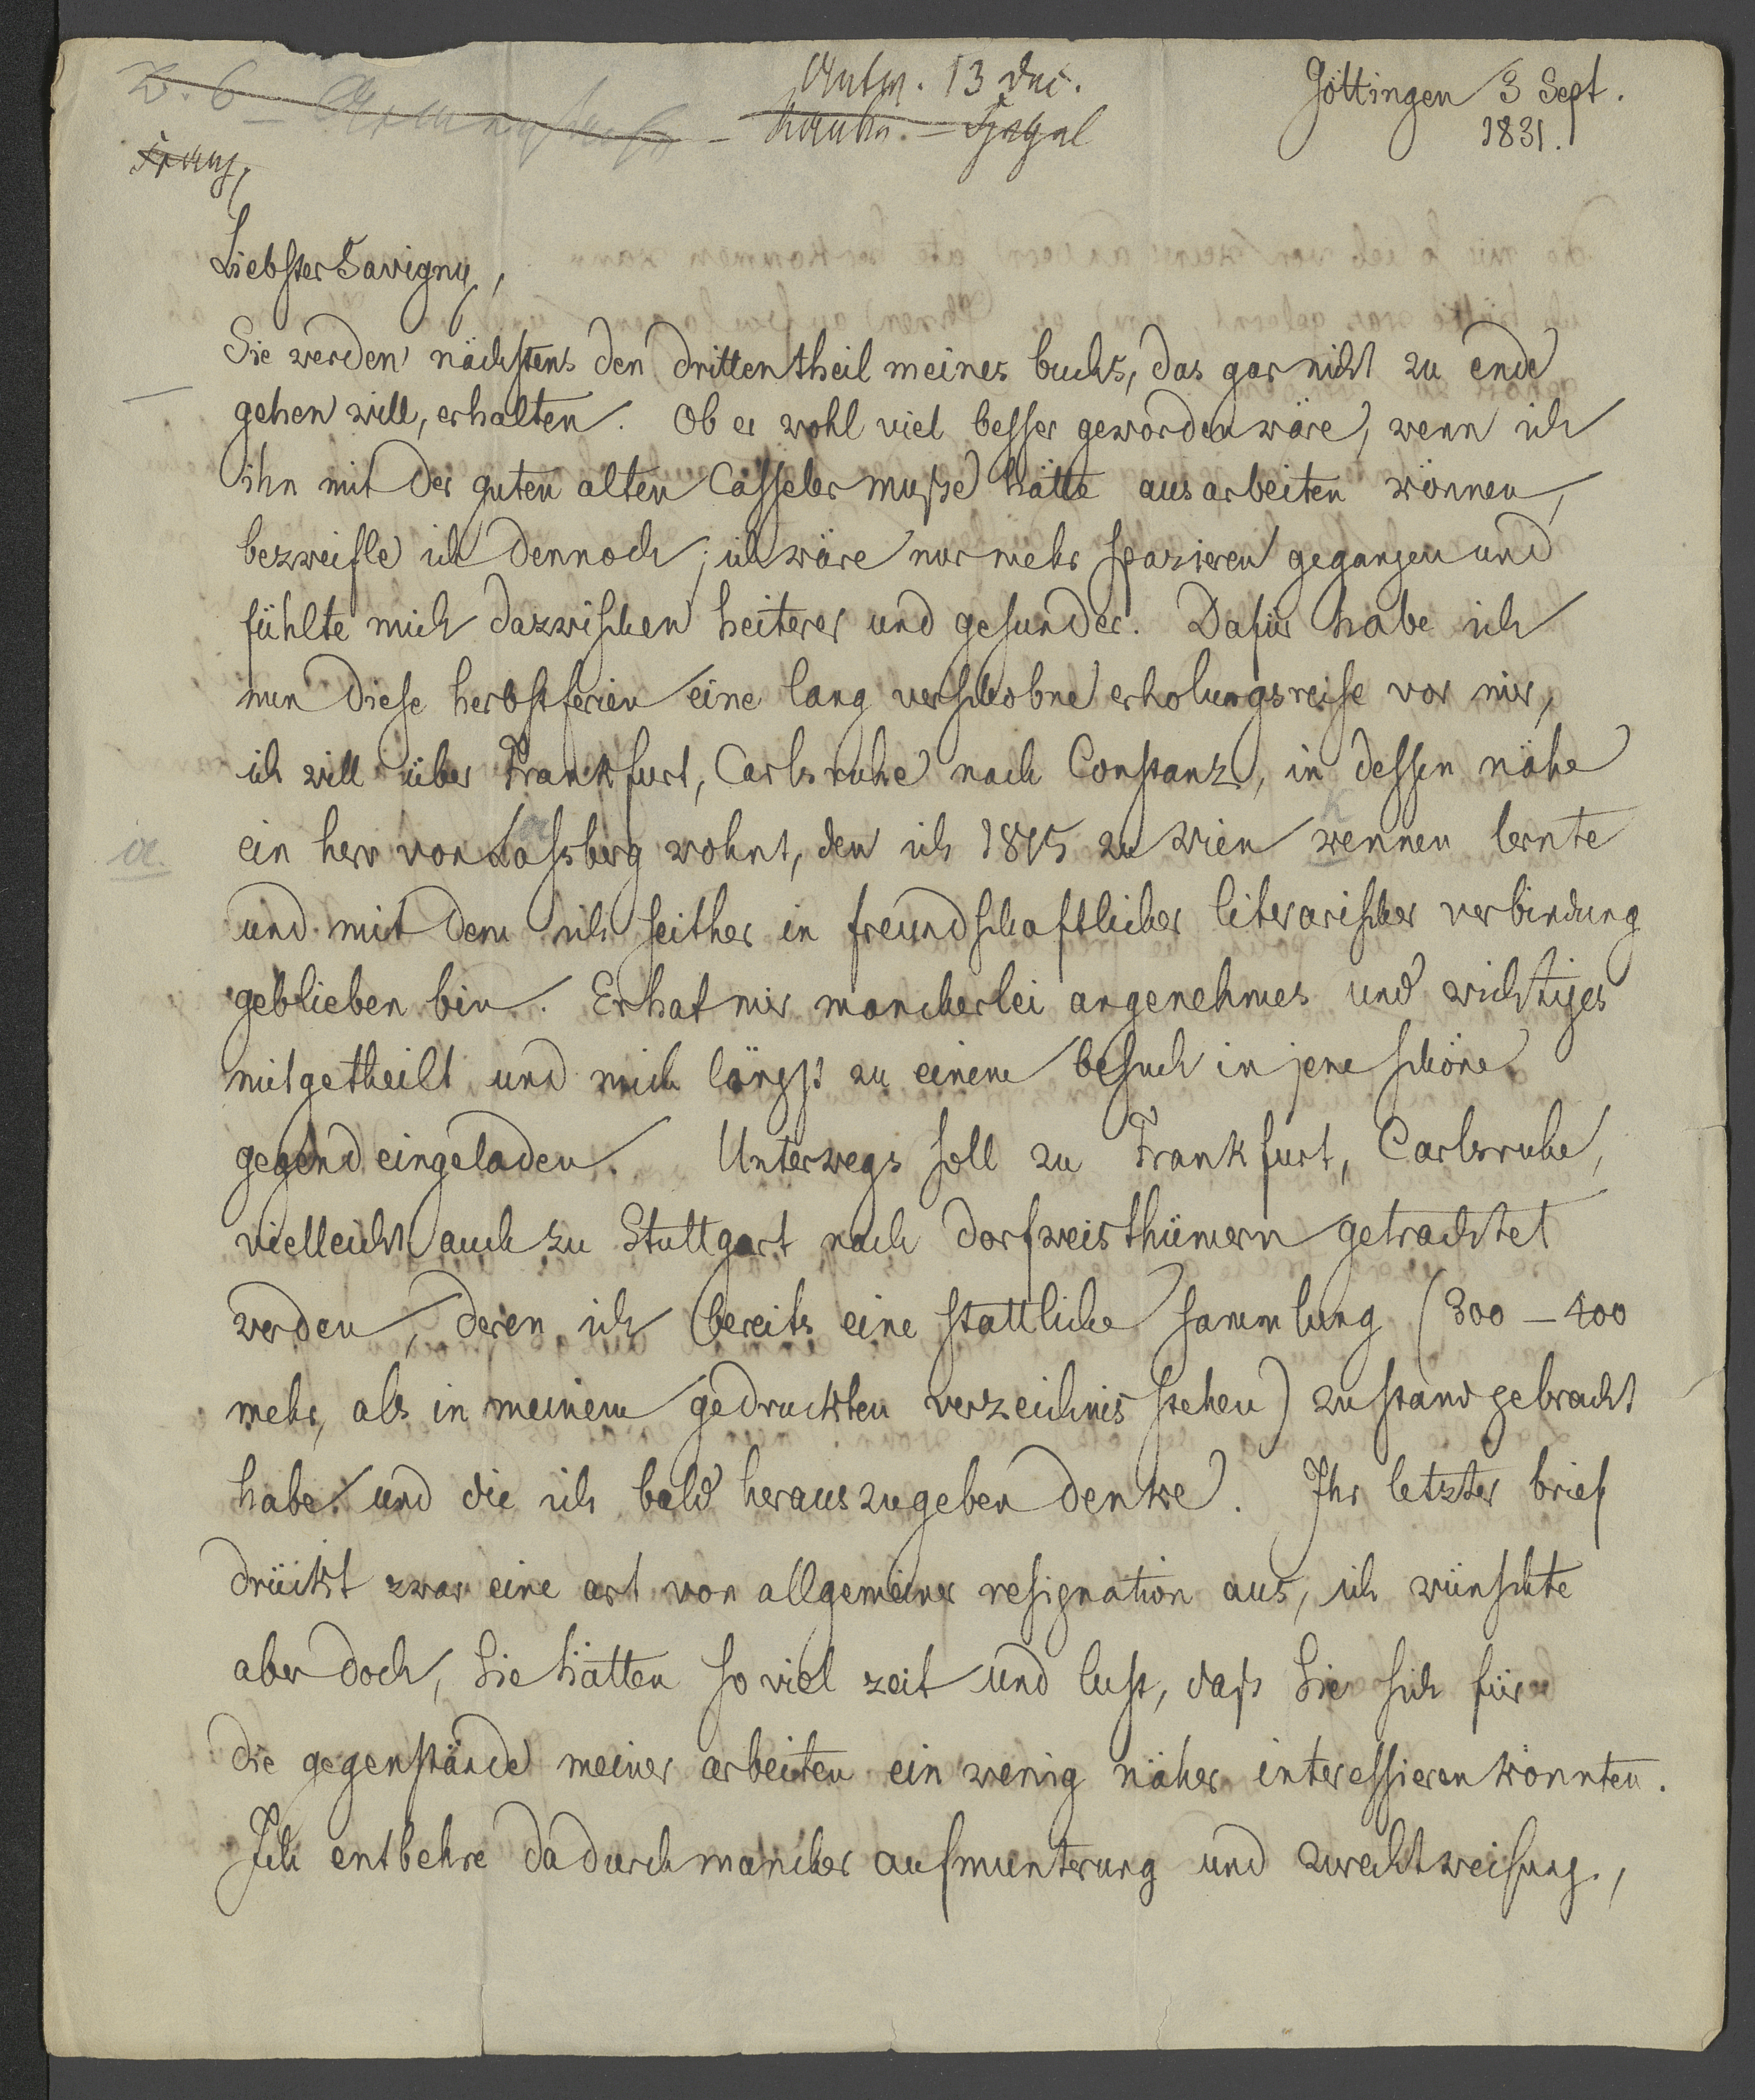 Antw. 13 Dec.
Göttingen 3 Sept.
1831.
Liebster Savigny,
Sie werden nächstens den dritten theil meines buchs, das gar nicht zu ende
gehen will, erhalten. Ob er wohl viel besser geworden wäre, wenn ich
ihn mit der guten alten Casseler muße hätte ausarbeiten können,
bezweifle ich dennoch; ich wäre nur mehr spazieren gegangen und
fühlte mich dazwischen heiterer und gesunder. Dafür habe ich
nun diese herbstferien eine lang verschobne erholungsreise vor mir,
ich will über Frankfurt, Carlsruhe nach Constanz, in dessen nähe
ein herr von Lassberg wohnt, den ich 1815 zu Wien kennen lernte
und mit dem ich seither in freundschaftlicher literarischer verbindung
geblieben bin. Er hat mir mancherlei angenehmes und wichtiges
mitgetheilt und mich längst zu einem besuch in jene schöne
gegend eingeladen. Unterwegs soll zu Frankfurt, Carlsruhe,
vielleicht auch zu Stuttgart nach dorfweisthümern getrachtet
werden, deren ich bereits eine stattliche sammlung (300 – 400
mehr, als in meinem gedruckten verzeichnis stehen) zustand gebracht
habe und die ich bald herauszugeben denke. Ihr letzter brief
drückt zwar eine art von allgemeiner resignation aus, ich wünschte
aber doch, Sie hätten so viel zeit und lust, daß Sie sich für
die gegenstände meiner arbeiten ein wenig näher interessieren könnten.
Ich entbehre dadurch mancher aufmunterung und zurechtweisung,